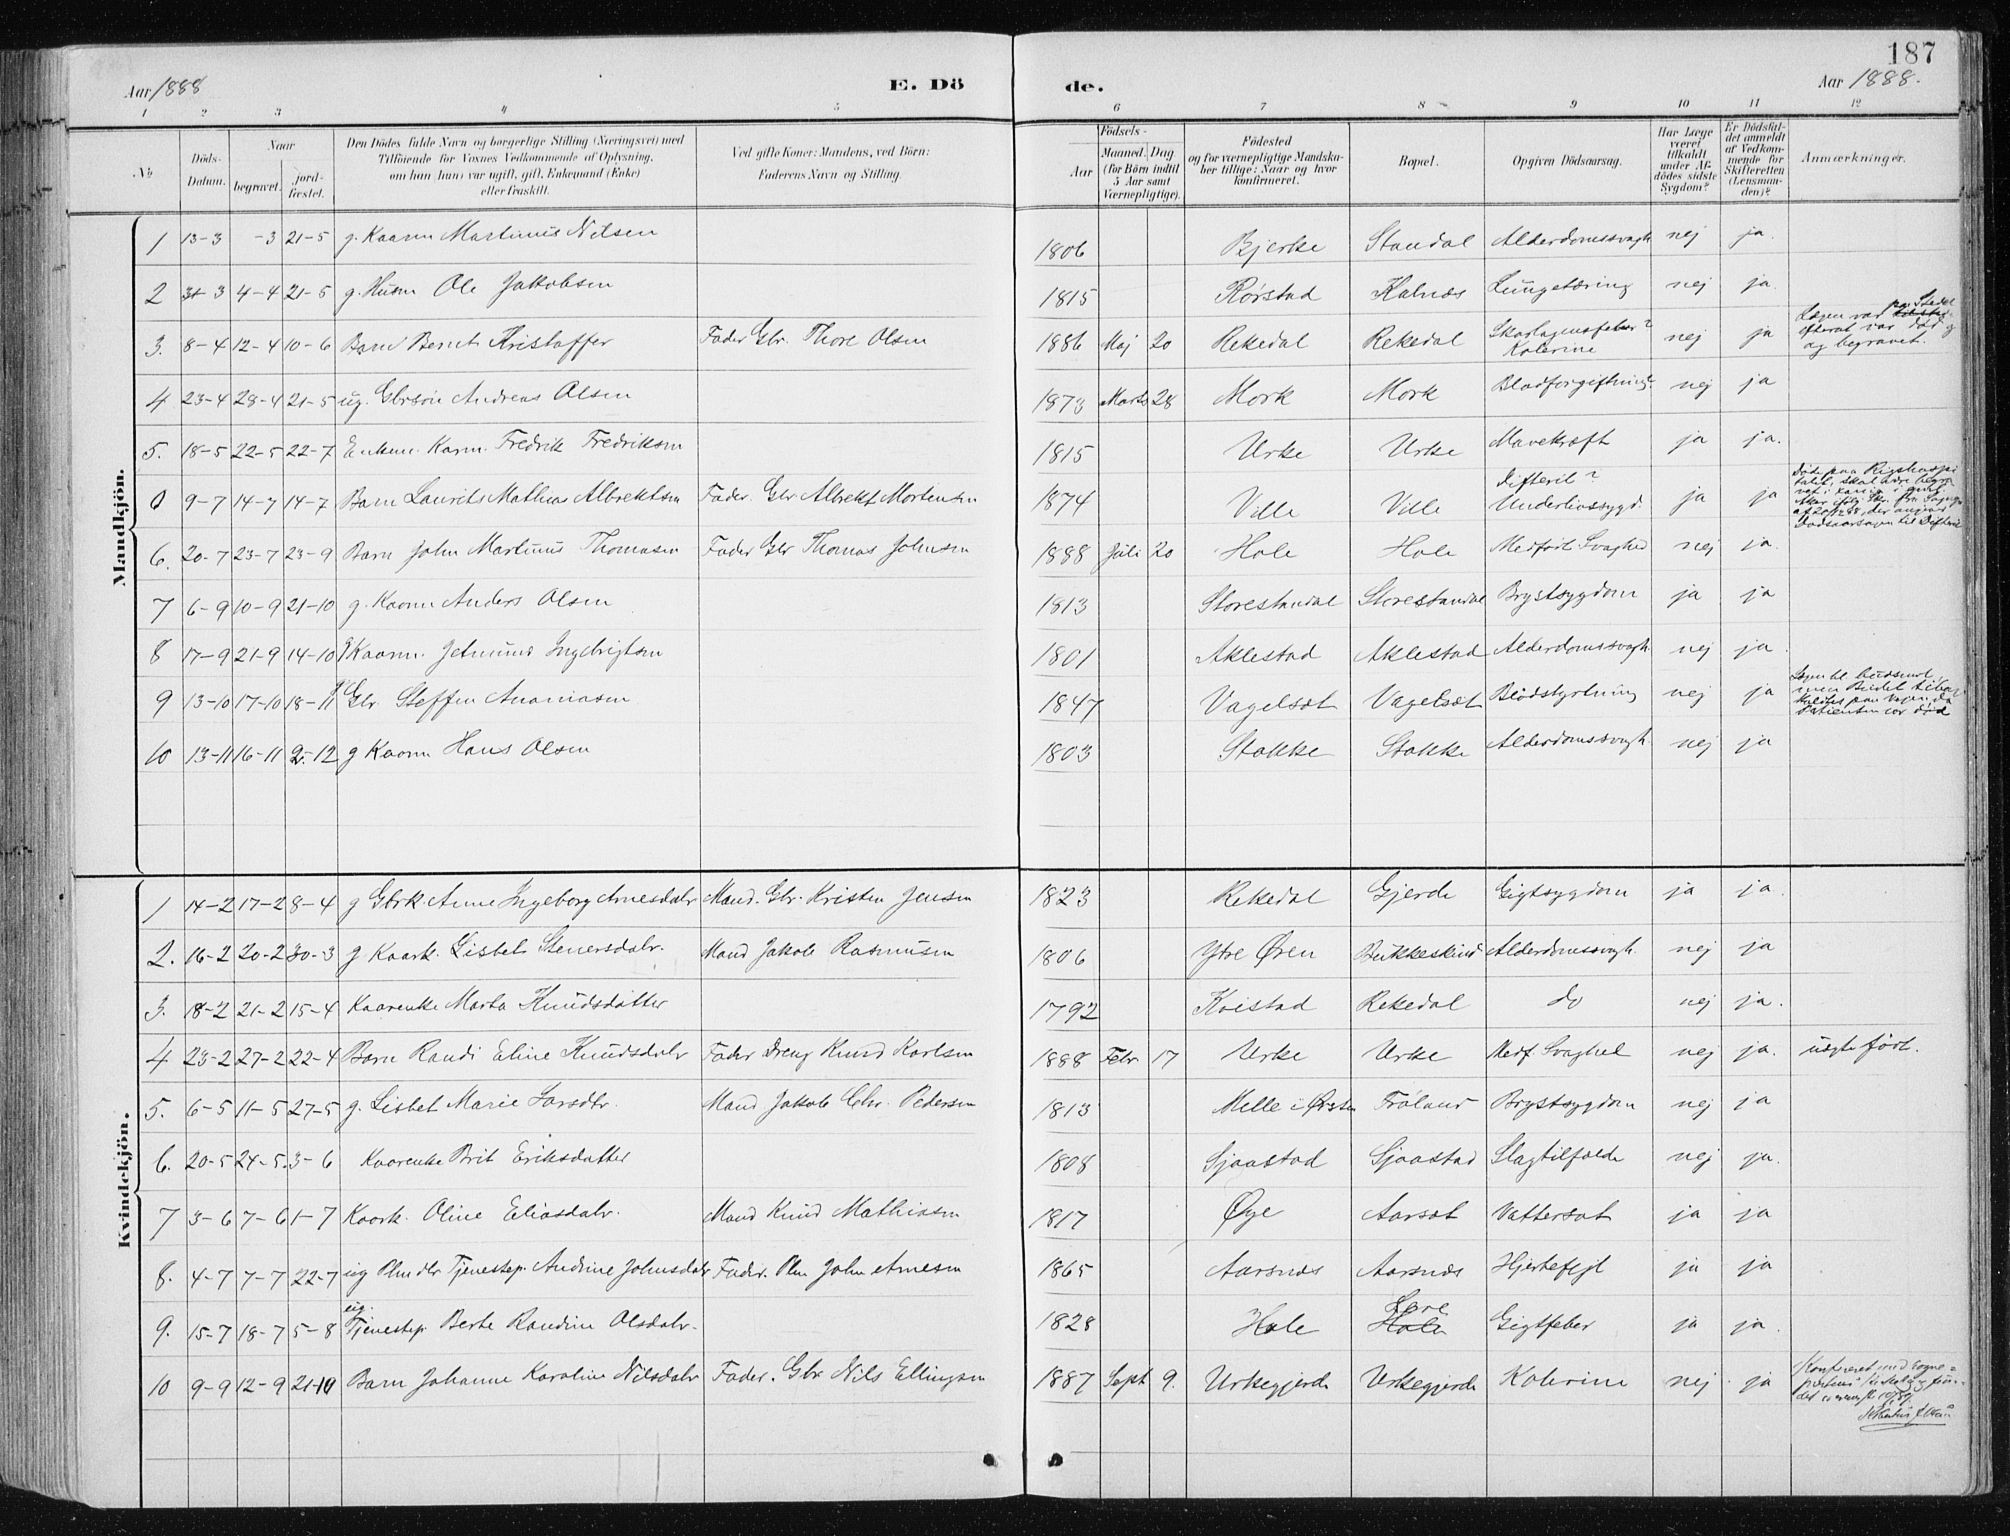 187
Aar 1888 E. Dö de. Aar 1888.
1 2 3 4 5 6 7 8 9 10 11 12
No. Döds-Datum. Naar begravet. jordfæstet. Den Dödes fulde Navn og borgerlige Stilling (Næringsvei) med Tilföiende for Voxnes Vedkommende af Oplysning, om han (hun) var ugift, gift, Enkemand (Enke) eller fraskilt. Ved gifte Koner: Mandens, ved Börn: Faderens Navn og Stilling. Födsels- Aar Maaned. Dag (for Börn indtil 5 Aar samt Værnepligtige). Födested og for værnepligtige Mandskaber tillige: Naar og hvor konfirmeret. Bopæl. Opgiven Dödsaarsag. Har Læge været tilkaldt under Afdödes sidste Sygdom? Er Dödsfaldet anmeldt af Vedkommende for Skifteretten (Lensmanden)? Anmærkninger.
Mandkjön.
1 13-3 -3 21-5 g. Kaarm Martinus Nilsen 1806 Bjerke Standal Alderdomssvagh nej ja.
2 31-3 4-4 21-5 g. Husm Ole Jakobsen 1815 Rørstad Kalnæs Lungetæring nej ja.
3. 8-4 12-4 10-6 Barn Bernt Kristoffer Fader Gbr. Thore Olsen 1886 Maj 20 Rekedal Rekedal Skarlagensfeber? Kolerine nej ja Lægen var paa Stedet efterat var død og begravet.
4 23-4 28-4 21-5 ug. Gbrsøn Andreas Olsen 1873 Marts 28 Mork Mork Blodforgiftning? nej ja
5. 18-5 22-5 22-7 Enkem. Karm. Fredrik Fredriksen 1815 Urke Urke Mavekræft ja ja.
0 9-7 14-7 14-7 Barn Laurits Mathias Albrektsen Fader. Gbr Albrekt Mortensen 1874 Ville Ville Difterit? Underlivssygd. ja ja Døde paa Rigshospitalet, Dødsaarsagen til Difterit
6. 20-7 23-7 23-9 Barn John Martinus Thomasen Fader Gbr Thomas Johnsen 1888 Juli 20 Hole Hole Medfødt Svaghed nej ja.
7 6-9 10-9 21-10 g. Kaarm Anders Olsen 1813 Storestandal Storestandal Brystsygdom ja ja
8 17-9 21-9 14-10 g Kaarm. Jetmund Ingebrigtsen 1801 Aklestad Aklestad Alderdomssvagh. nej ja.
9 13-10 17-10 18-11 g Gbr. Steffen Ananiasen 1847 Vagelsæt Vagelsæt Blodstyrtning nej ja Patienten var død
10 13-11 16-11 2-12 g Kaarm Hans Olsen 1803 Stokke Stokke Alderdomssvagh. nej ja
Kvindekjön.
1 14-2 17-2 8-4 g Gbrk. Anne Ingeborg Arnesdatr Mand. Gbr. Kristen Jensen 1823 Rekedal Gjerde Gigtsygdom ja ja.
2. 16-2 20-2 30-3 g Kaark. Lisbet Steversdatr. Mand Jakob Rasmusen 1806 Ytre Øren Bukkeskind Alderdomssvagh. nej ja
3. 18-2 21-2 15-4 Kaarenke Marta Knudsdatter 1792 Kvistad Rekedal do nej ja.
4 23-2 27-2 22-4 Barn Randi Eline Knudsdatr Fader Dreng Knud Karlsen 1888 Febr. 17 Urke Urke Medf. Svaghed nej ja. uægte født.
5. 6-5 11-5 27-5 g. Lisbet Marie Larsdtr. Mand Jakob Chr. Pedersen 1813 Melle i Ørsten Frøland Brystsygdom nej ja
6. 20-5 24-5. 3-6 Kaarenke Brit Eriksdatter 1808 Sjaastad Sjaastad Slagtilfælde nej ja.
7 3-6 7-6 1-7 Kaark. Oline Eliasdatr. Mand Knud Mathiasen 1817 Øye Aarsæt Vattersot ja ja
8. 4-7 7-7 22-7 ug Plm dtr Tjenestep. Andrine Johnsdatr Fader. Plm John Arnesen 1865 Aarsnæs Aarsnæs Hjertefejl ja ja
9. 15-7 18-7 5-8 ug. Tjenestep. Berte Randine Olsdatr. 1828 Hole Hole Gigtfeber ja ja.
10 9-9 12-9 21-10 Barn Johanne Karoline Nilsdatr Fader. Gbr Nils Ellingsen 1887 Sept 9. Urkegjerde Urkegjerde Kolerine nej ja Konfereret med